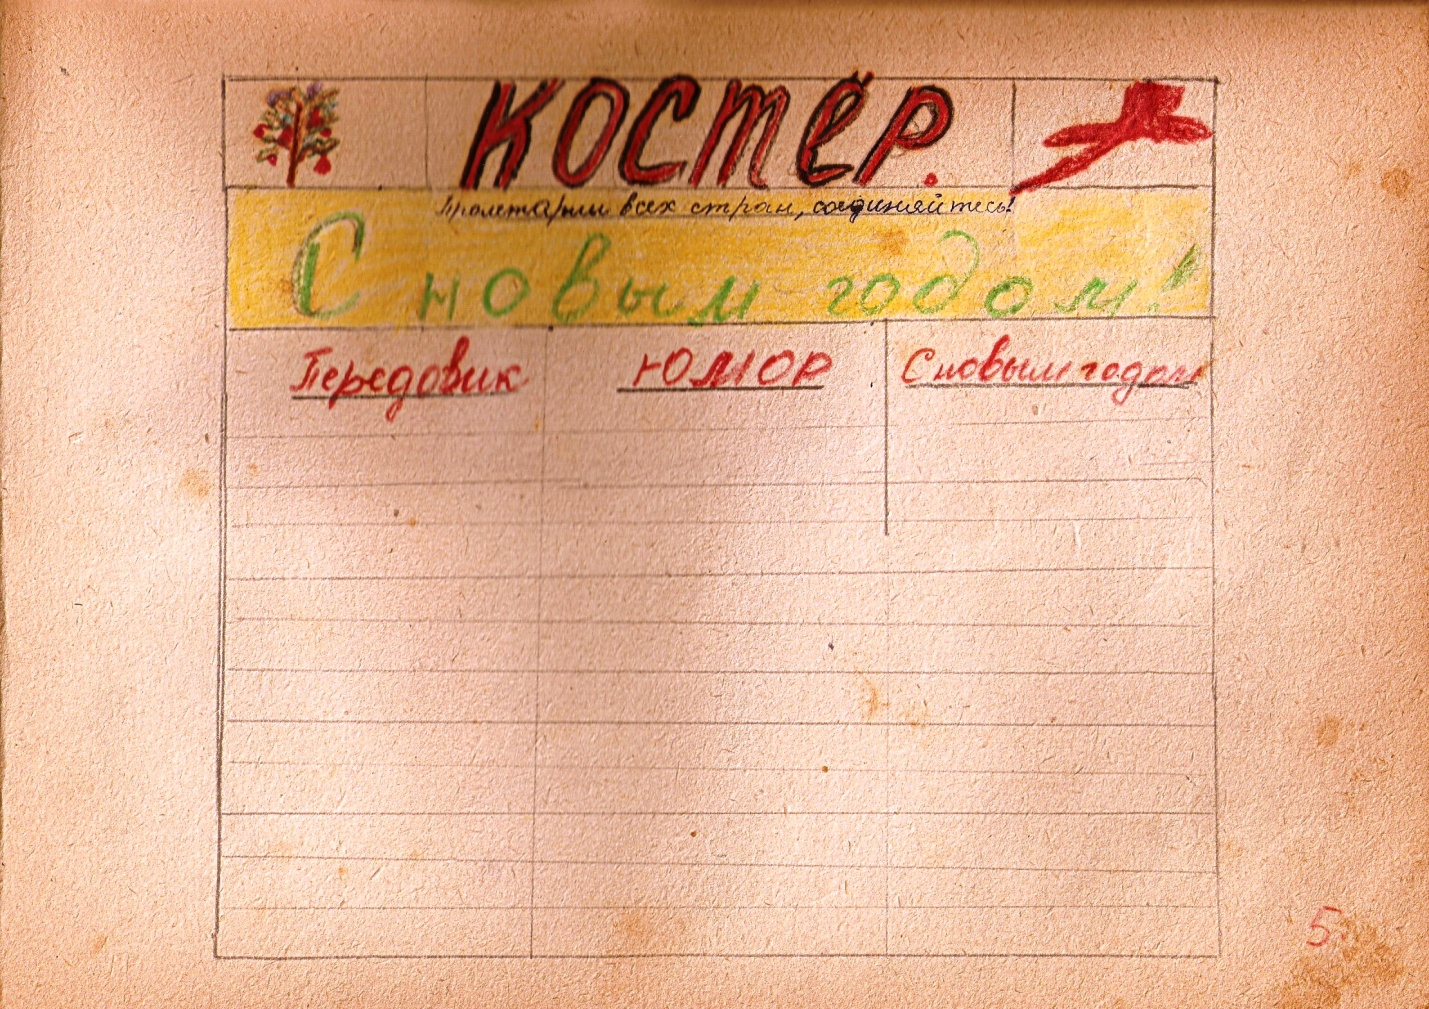 КОСТЁР.
Пролетарии всех стран, соединяйтесь!
С новым годом!
Передовик
ЮМОР
С новым годом
5